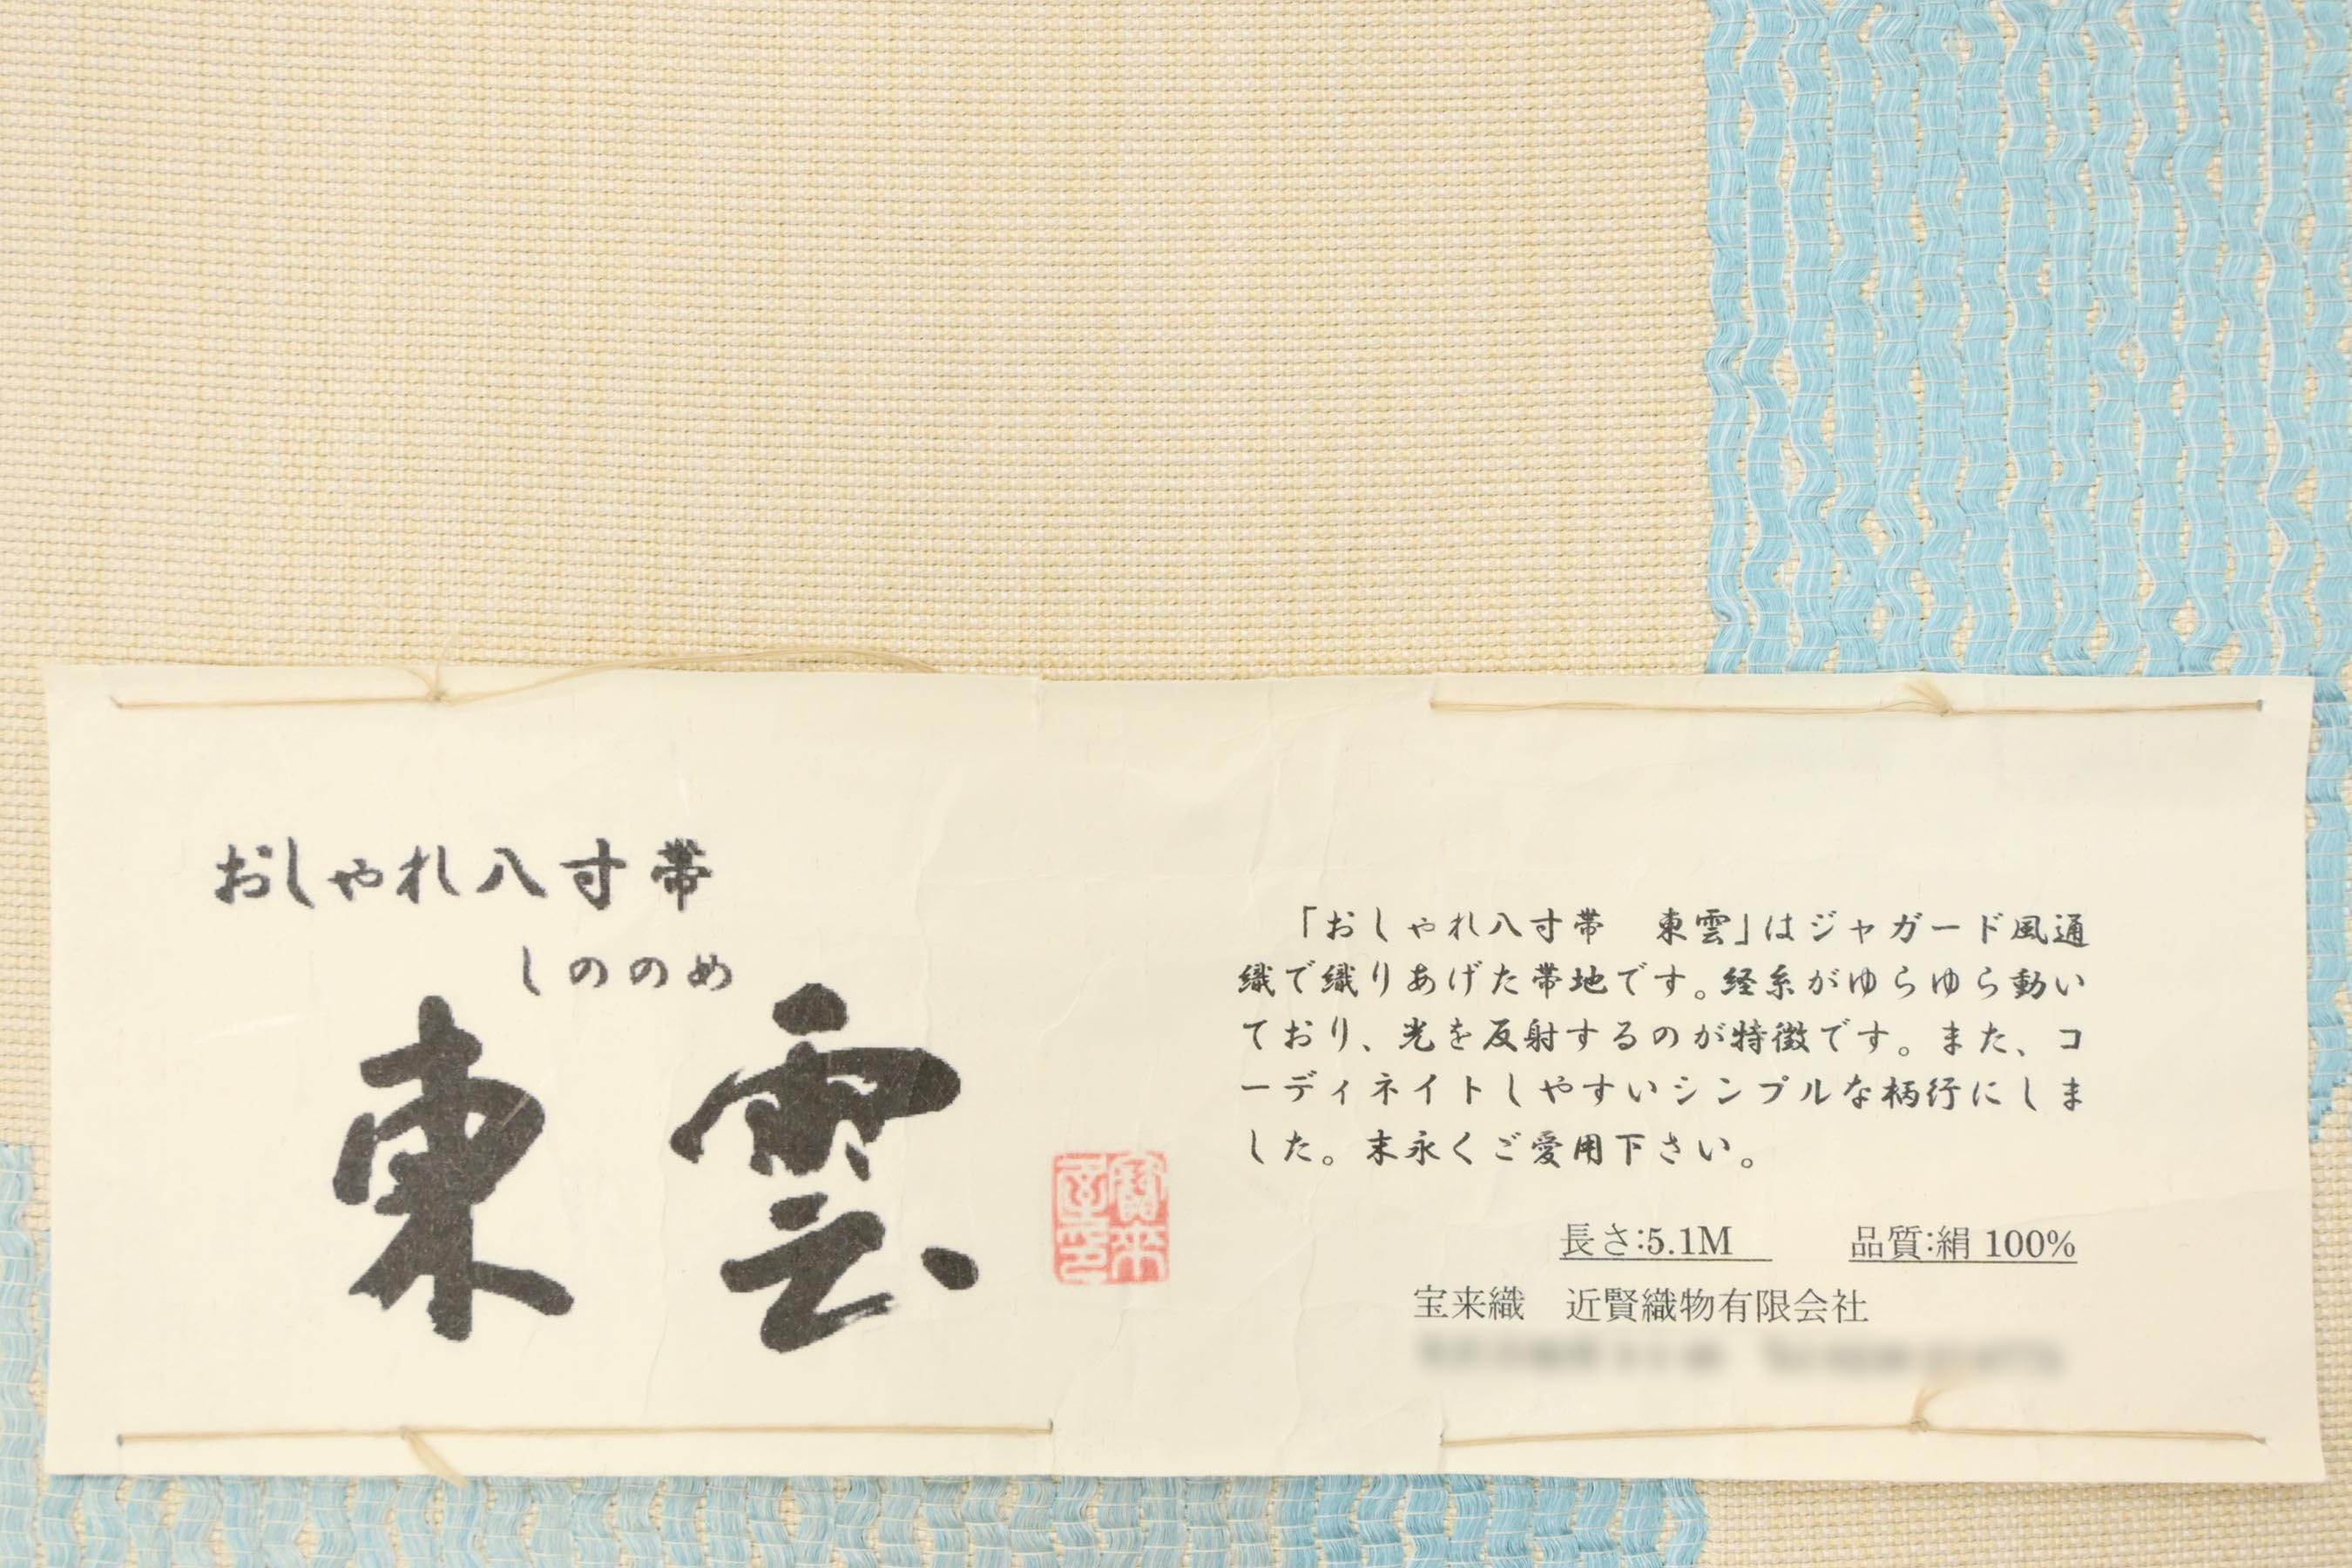 おしゃれ八寸帯
しののめ
東雲
「おしゃれ八寸帯　東雲」はジャガード風通
織で織りあげた帯地です。経糸がゆらゆら動い
ており、光を反射するのが特徴です。また、コ
ーディネイトしやすいシンプルな柄行にしま
した。末永くご愛用下さい。
長さ:5.1M　品質:絹 100%
宝来織　近賢織物有限会社